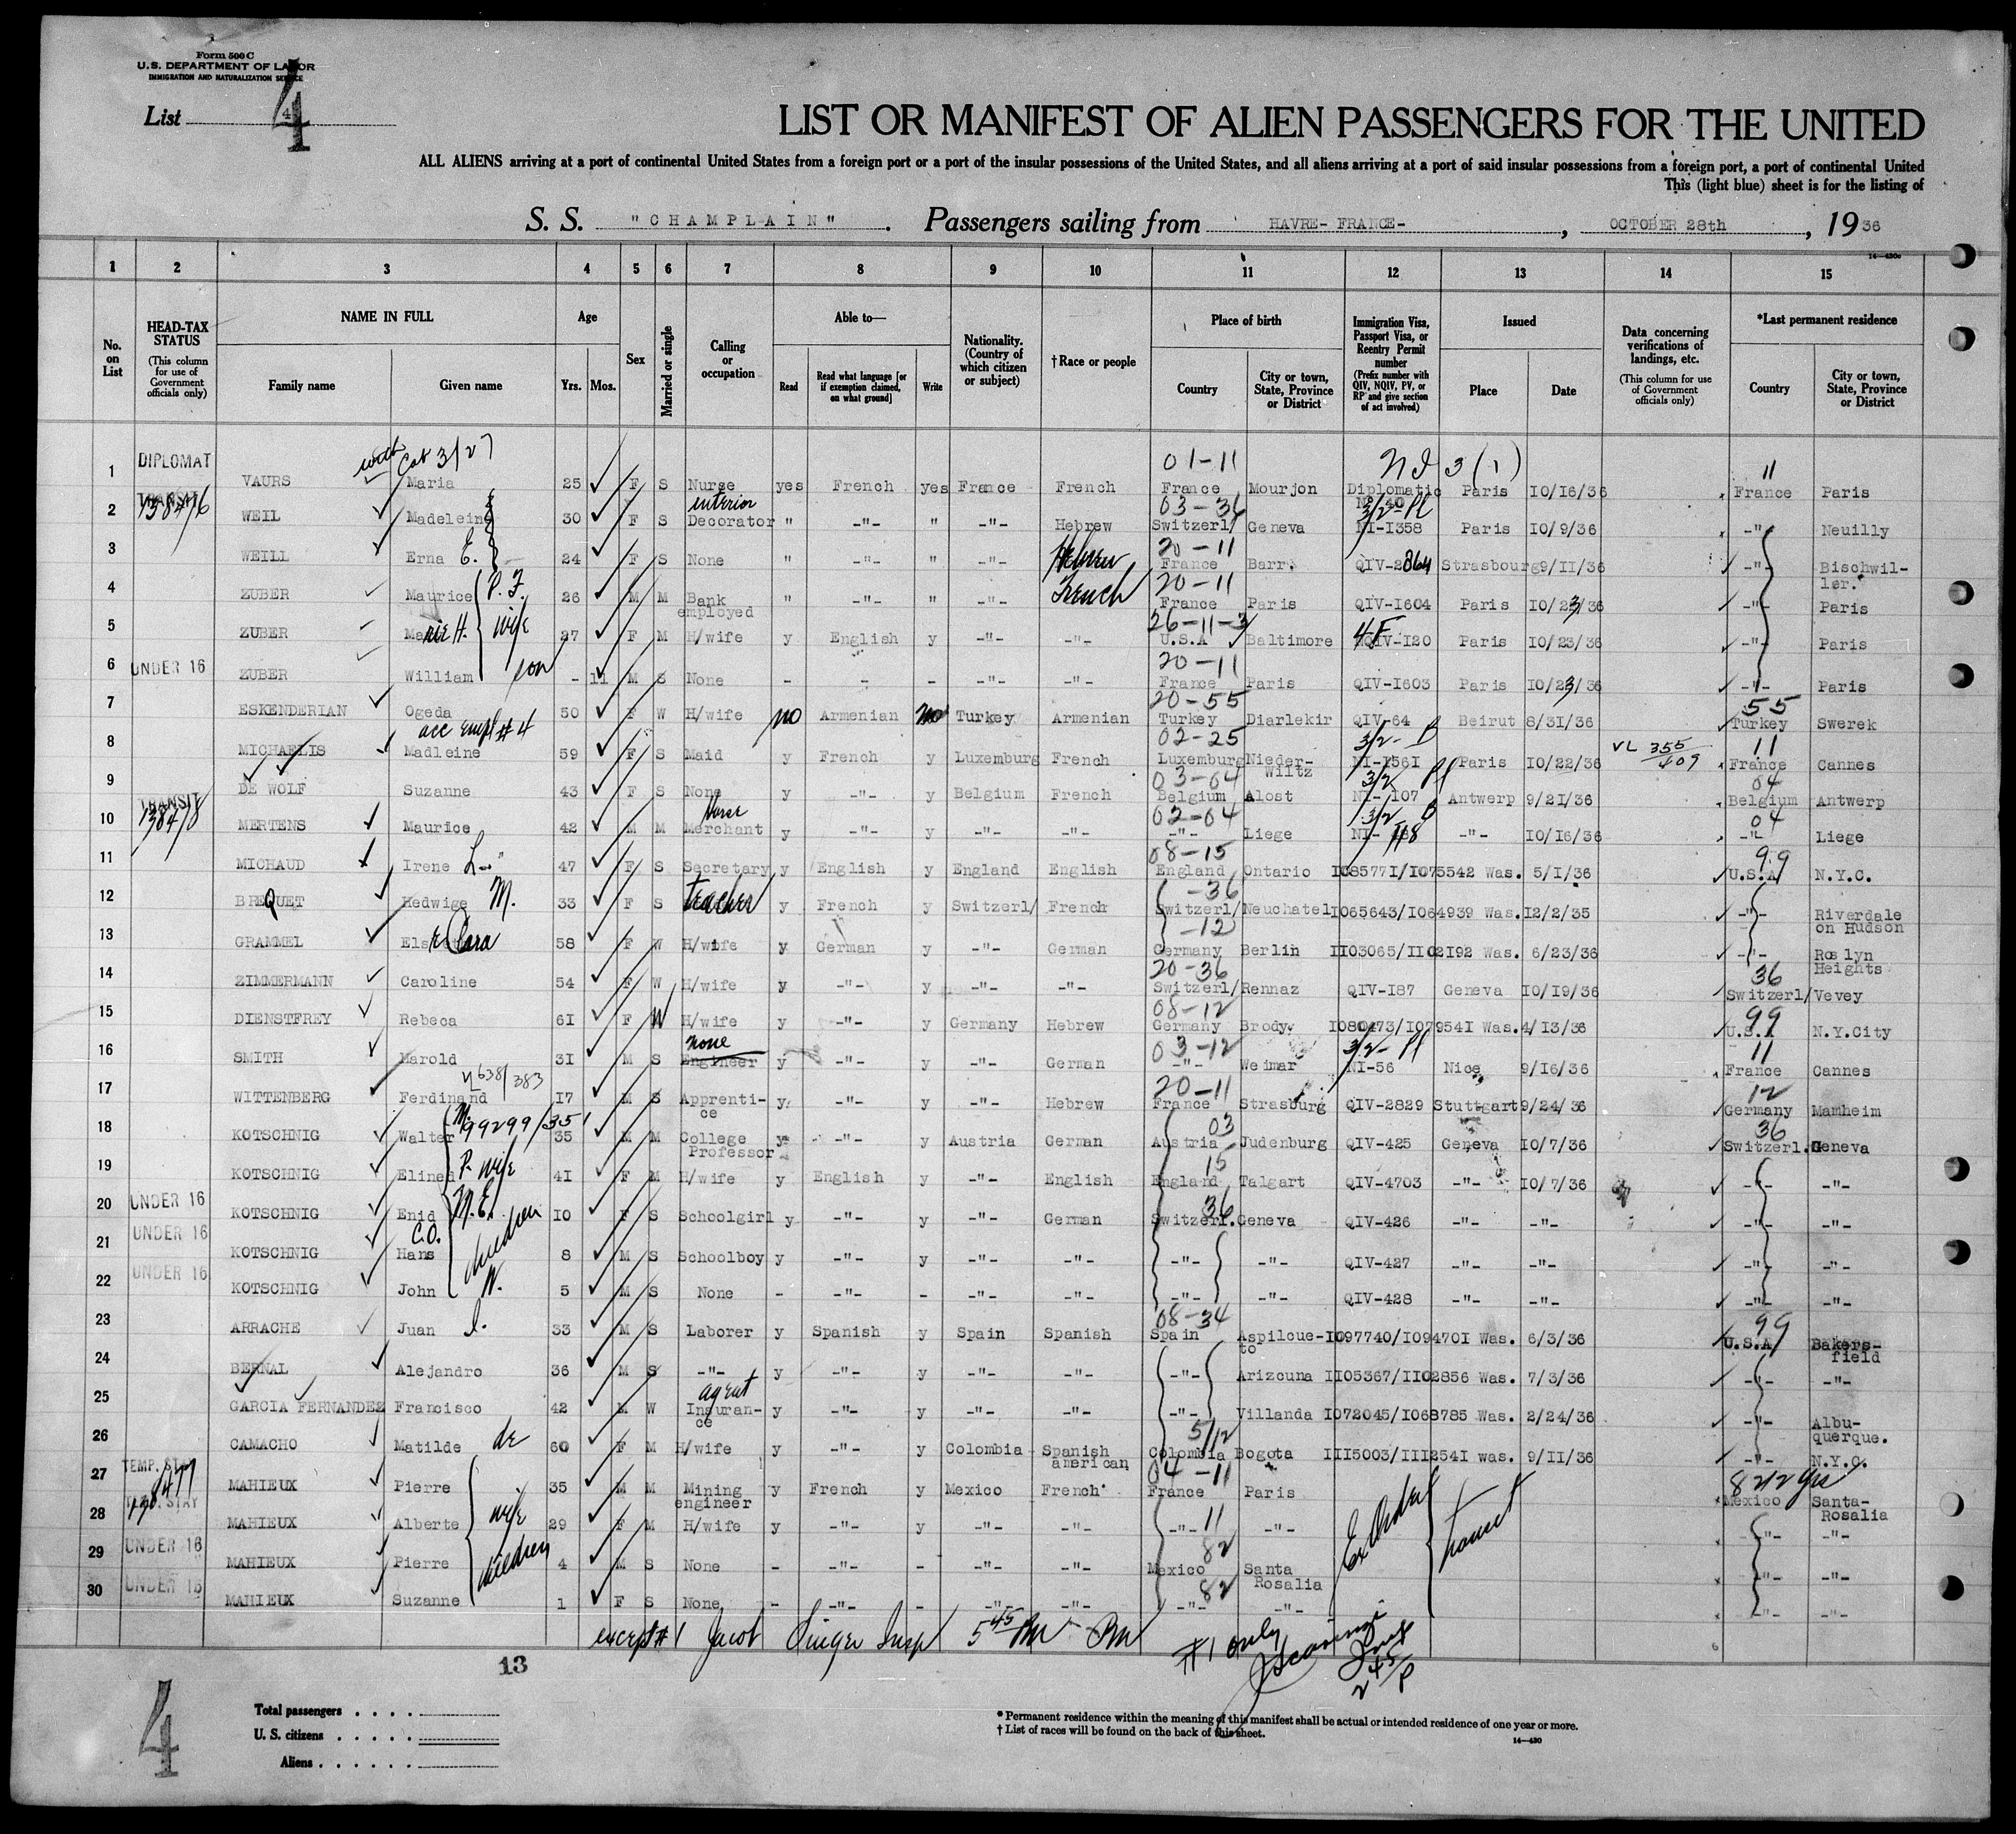 Form 500 C
U.S. DEPARTMENT OF LABOR
IMMIGRATION AND NATURALIZATION SERVICE
List 4
LIST OR MANIFEST OF ALIEN PASSENGERS FOR THE UNITED
ALL ALIENS arriving at a port of continental United States from a foreign port or a port of the insular possessions of the United States, and all aliens arriving at a port of said insular possessions from a foreign port, a port of continental United
This (light blue) sheet is for the listing of
S. S. "CHAMPLAIN". Passengers sailing from HAVRE- FRANCE-, OCTOBER 28th, 1936
14—430c
1 2 3 4 5 6 7 8 9 10 11 12 13 14 15
No. on List
HEAD-TAX STATUS (This column for use of Government officials only)
NAME IN FULL Family name Given name
Age Yrs. Mos.
Sex
Married or single
Calling or occupation
Able to— Read Read what language [or if exemption claimed, on what ground] Write
Nationality. (Country of which citizen or subject)
†Race or people
Place of birth Country City or town, State, Province or District
Immigration Visa, Passport Visa, or Reentry Permit number (Prefix number with QIV, NQIV, PV, or RP and give section of act involved)
Issued Place Date
Data concerning verifications of landings, etc. (This column for use of Government officials only)
*Last permanent residence Country City or town, State, Province or District
1 DIPLOMAT VAURS Maria 25 F S Nurse yes French yes France French 01-11 France Mourjon Diplomatic Paris 10/16/36 11 France Paris
2 TRANSIT WEIL Madeleine 30 F S interior Decorator " -"- " -"- Hebrew 03-36 Switzerl/ Geneva NI-1358 Paris 10/9/36 -"- Neuilly
3 WEILL Erna E. 24 F S None " -"- " -"- Hebrew 20-11 France Barr QIV-2864 Strasbourg 9/11/36 -"- Bischwil-ler.
4 ZUBER Maurice P. F. 26 M M Bank employed " -"- " -"- French 20-11 France Paris QIV-1604 Paris 10/23/36 -"- Paris
5 ZUBER Marie H. wife 27 F M H/wife y English y -"- -"- 26-11-3 U.S.A Baltimore 4F NQIV-120 Paris 10/23/36 -"- Paris
6 UNDER 16 ZUBER William son - 11 M S None - - - -"- -"- 20-11 France Paris QIV-1603 Paris 10/23/36 -"- Paris
7 ESKENDERIAN Ogeda 50 F W H/wife no Armenian no Turkey Armenian 20-55 Turkey Diarlekir QIV-64 Beirut 8/31/36 55 Turkey Swerek
8 MICHAELIS acc empl #4 Madleine 59 F S Maid y French y Luxemburg French 02-25 Luxemburg Nieder-wiltz 3/2- NI-1561 Paris 10/22/36 VL 355 11 France Cannes
9 DE WOLF Suzanne 43 F S None y -"- y Belgium French 03-04 Belgium Alost 3/2 Pl NI-107 Antwerp 9/21/36 04 Belgium Antwerp
10 TRANSIT MERTENS Maurice 42 M M Merchant y -"- y -"- -"- 02-04 -"- Liege 3/2- NI- -"- 10/16/36 04 -"- Liege
11 MICHAUD Irene L. 47 F S Secretary y English y England English 08-15 England Ontario 1085771/1075542 Was. 5/1/36 99 U.S.A N.Y.C.
12 BREQUET Hedwige M. 33 F S teacher y French y Switzerl/ French -36 Switzerl/ Neuchatel 1065643/1064939 Was. 12/2/35 -"- Riverdale on Hudson
13 GRAMMEL Else Clara 58 F W H/wife y German y -"- German -12 Germany Berlin 1103065/1102192 Was. 6/23/36 -"- Roslyn Heights
14 ZIMMERMANN Caroline 54 F W H/wife y -"- y -"- -"- 20-36 Switzerl/ Rennaz QIV-187 Geneva 10/19/36 36 Switzerl/ Vevey
15 DIENSTFREY Rebeca 61 F W H/wife y -"- y Germany Hebrew 08-12 Germany Brody 1080473/1079541 Was. 4/13/36 99 U.S.A N.Y.City
16 SMITH Harold 31 M S none Engineer y -"- y -"- German 03-12 -"- Weimar 3/2- Pl NI-56 Nice 9/16/36 11 France Cannes
17 WITTENBERG VL 638/383 Ferdinand 17 M S Apprenti-ce y -"- y -"- Hebrew 20-11 France Strasburg QIV-2829 Stuttgart 9/24/36 12 Germany Mamheim
18 KOTSCHNIG Walter M. 99299/35 35 M M College Professor y -"- y Austria German 03 Austria Judenburg QIV-425 Geneva 10/7/36 36 Switzerl. Geneva
19 KOTSCHNIG Elined P. wife 41 F M H/wife y English y -"- English 15 England Talgart QIV-4703 -"- 10/7/36 -"- -"-
20 UNDER 16 KOTSCHNIG Enid M.E. 10 F S Schoolgirl y -"- y -"- German 36 Switzerl. Geneva QIV-426 -"- -"- -"- -"-
21 UNDER 16 KOTSCHNIG Hans C.O. children 8 M S Schoolboy y -"- y -"- -"- -"- -"- QIV-427 -"- -"- -"- -"-
22 UNDER 16 KOTSCHNIG John W. 5 M S None - -"- - -"- -"- -"- -"- QIV-428 -"- -"- -"- -"-
23 ARRACHE Juan J. 33 M S Laborer y Spanish y Spain Spanish 08-34 Spain Aspilcue-to 1097740/1094701 Was. 6/3/36 99 U.S.A Bakers-field
24 BERNAL Alejandro 36 M S -"- y -"- y -"- -"- -"- Arizcuna 1105367/1102856 Was. 7/3/36 -"- -"-
25 GARCIA FERNANDEZ Francisco 42 M W agent Insuran-ce y -"- y -"- -"- -"- Villanda 1072045/1068785 Was. 2/24/36 -"- Albu-querque.
26 CAMACHO Matilde de 60 F M H/wife y -"- y Colombia Spanish american 5/12 Colombia Bogota 1115003/1112541 was. 9/11/36 -"- N.Y.C.
27 TEMP. STAY MAHIEUX Pierre 35 M M Mining engineer y French y Mexico French 04-11 France Paris Mexico Santa-Rosalia
28 TEMP. STAY MAHIEUX Alberte wife 29 F M H/wife y -"- y -"- -"- -"- 11 -"- Ex Order transit -"- -"-
29 UNDER 16 MAHIEUX Pierre children 4 M S None - -"- - -"- -"- 82 Mexico Santa Rosalia -"- -"-
30 UNDER 16 MAHIEUX Suzanne 1 F S None - -"- - -"- -"- 82 -"- -"- -"- -"-
except #1 Jacob Singer Insp 5 45 PM #1 only 2 45/P
13
4
Total passengers
U. S. citizens
Aliens
* Permanent residence within the meaning of this manifest shall be actual or intended residence of one year or more.
† List of races will be found on the back of this sheet.
14—430